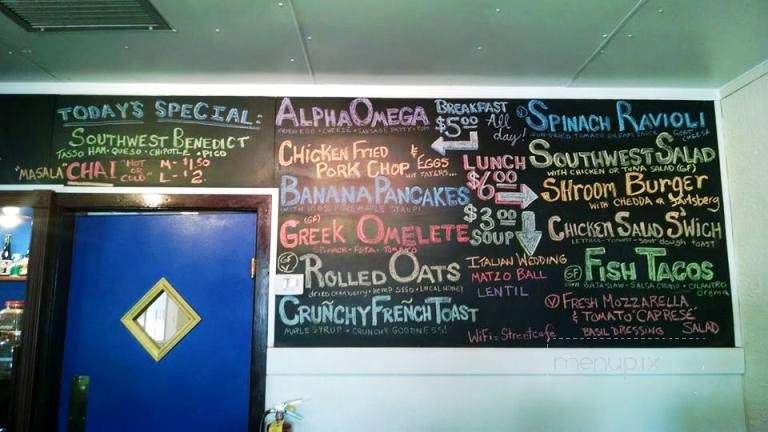 TODAY'S SPECIAL:
SOUTHWEST BENEDICT
TASSO HAM · QUESO · CHIPOTLE · PICO
"MASALA" CHAI "HOT OR COLD" M- $1.50
L- $2.
ALPHA OMEGA
FRIED EGG · CHEEZE · SAUSAGE PATTY · TOM
CHICKEN FRIED
PORK CHOP & EGGS
W/ TATERS...
BANANA PANCAKES
WITH 100% PURE MAPLE SYRUP!
(GF)
GREEK OMELETE
SPINACH · FETA · TOMATO
GF V ROLLED OATS
dried cranberry · hemp seed · local honey
CRUNCHY FRENCH TOAST
MAPLE SYRUP · CRUNCHY GOODNESS!
BREAKFAST
$5.00 All day!
LUNCH
$6.00
$3.00
SOUP
ITALIAN WEDDING
MATZO BALL
LENTIL
WiFi = Streetcafe
V SPINACH RAVIOLI
SUN-DRIED TOMATO CREAM SAUCE · GOAT CHEESE
SOUTHWEST SALAD
WITH CHICKEN OR TUNA SALAD (GF)
SHROOM BURGER
WITH CHEDDA OR JARLSBERG
CHICKEN SALAD S'WICH
LETTUCE · TOMATO · SOUR DOUGH TOAST
GF FISH TACOS
CORN · SALSA · CILANTRO
CREMA
V FRESH MOZZARELLA
& TOMATO 'CAPRESE'
BASIL DRESSING SALAD
menupix